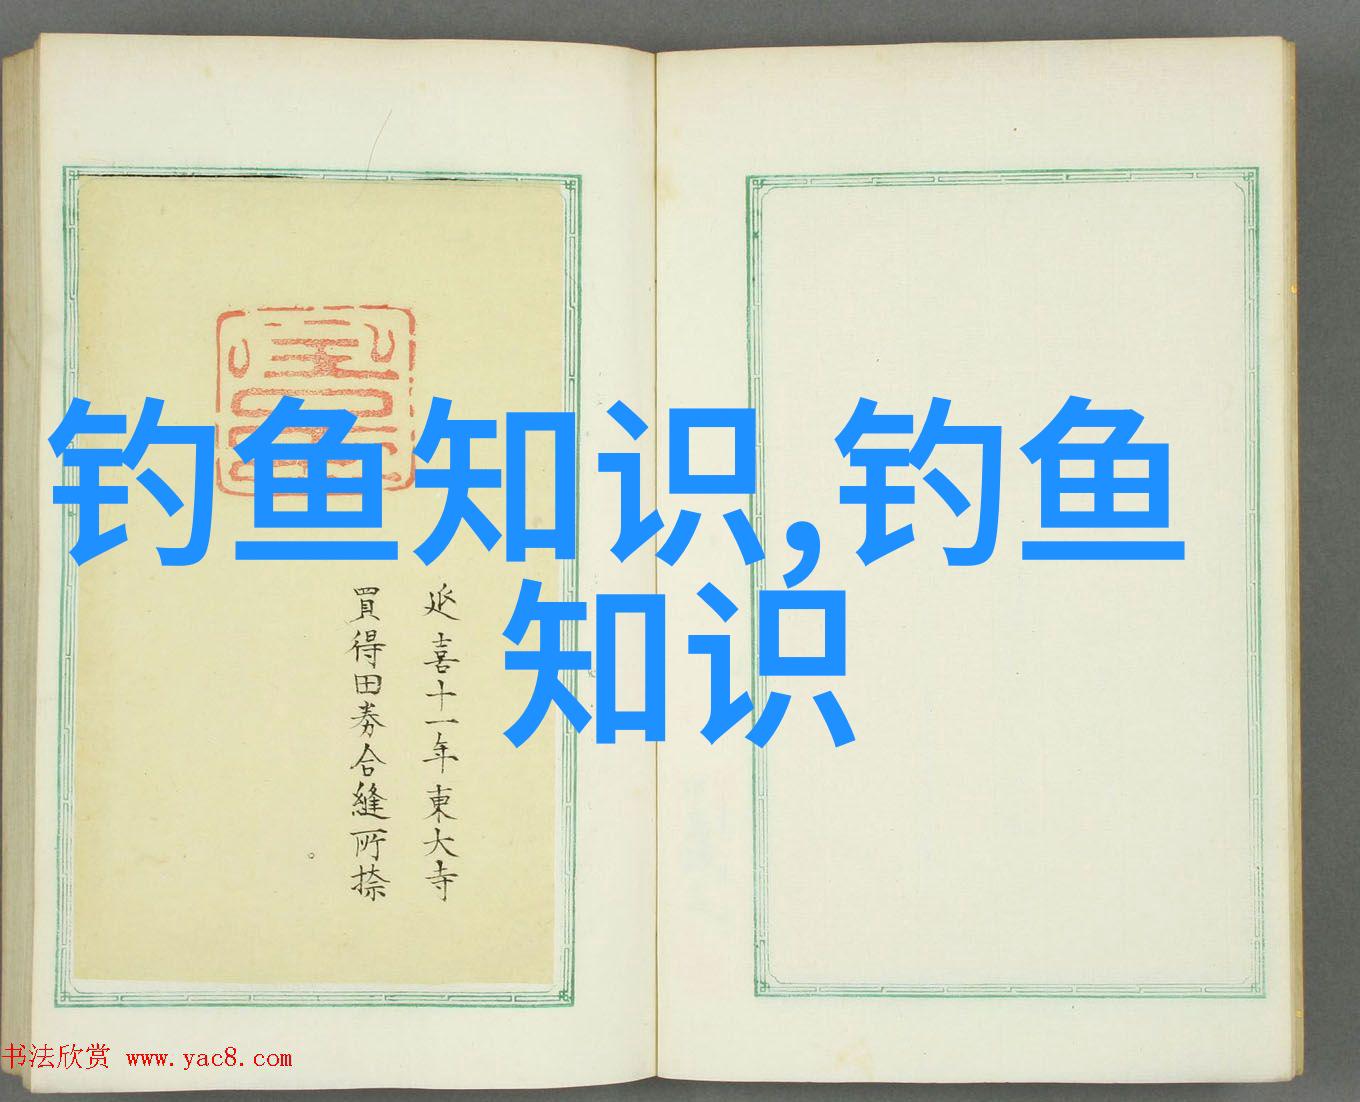 钓鱼知识,钓鱼
知识
延喜十一年東大寺
買得田券合縫所捺
书法欣赏 www.yac8.com